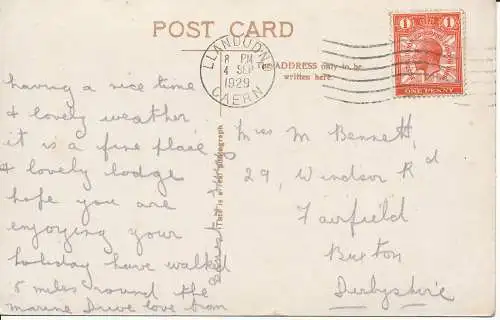 POST CARD
LLANDUDNO
8 PM
4 SEP
1929
CAERN
The ADDRESS only to be
written here.
1 1
ONE PENNY
This is a real photograph
having a nice time
& lovely weather
it is a fine place
& lovely lodge
hope you are
enjoying your
holiday have walked
5 miles round the
marine Drive love from
Miss M Bennett,
29, Windsor Rd
Fairfield
Buxton
Derbyshire